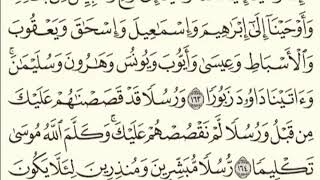 وَأَوْحَيْنَآ إِلَىٰٓ إِبْرَٰهِيمَ وَإِسْمَٰعِيلَ وَإِسْحَٰقَ وَيَعْقُوبَ
وَٱلْأَسْبَاطِ وَعِيسَىٰ وَأَيُّوبَ وَيُونُسَ وَهَٰرُونَ وَسُلَيْمَٰنَۚ
وَءَاتَيْنَا دَاوُۥدَ زَبُورًا ١٦٣ وَرُسُلًا قَدْ قَصَصْنَٰهُمْ عَلَيْكَ
مِن قَبْلُ وَرُسُلًا لَّمْ نَقْصُصْهُمْ عَلَيْكَۚ وَكَلَّمَ ٱللَّهُ مُوسَىٰ
تَكْلِيمًا ١٦٤ رُّسُلًا مُّبَشِّرِينَ وَمُنذِرِينَ لِئَلَّا يَكُونَ